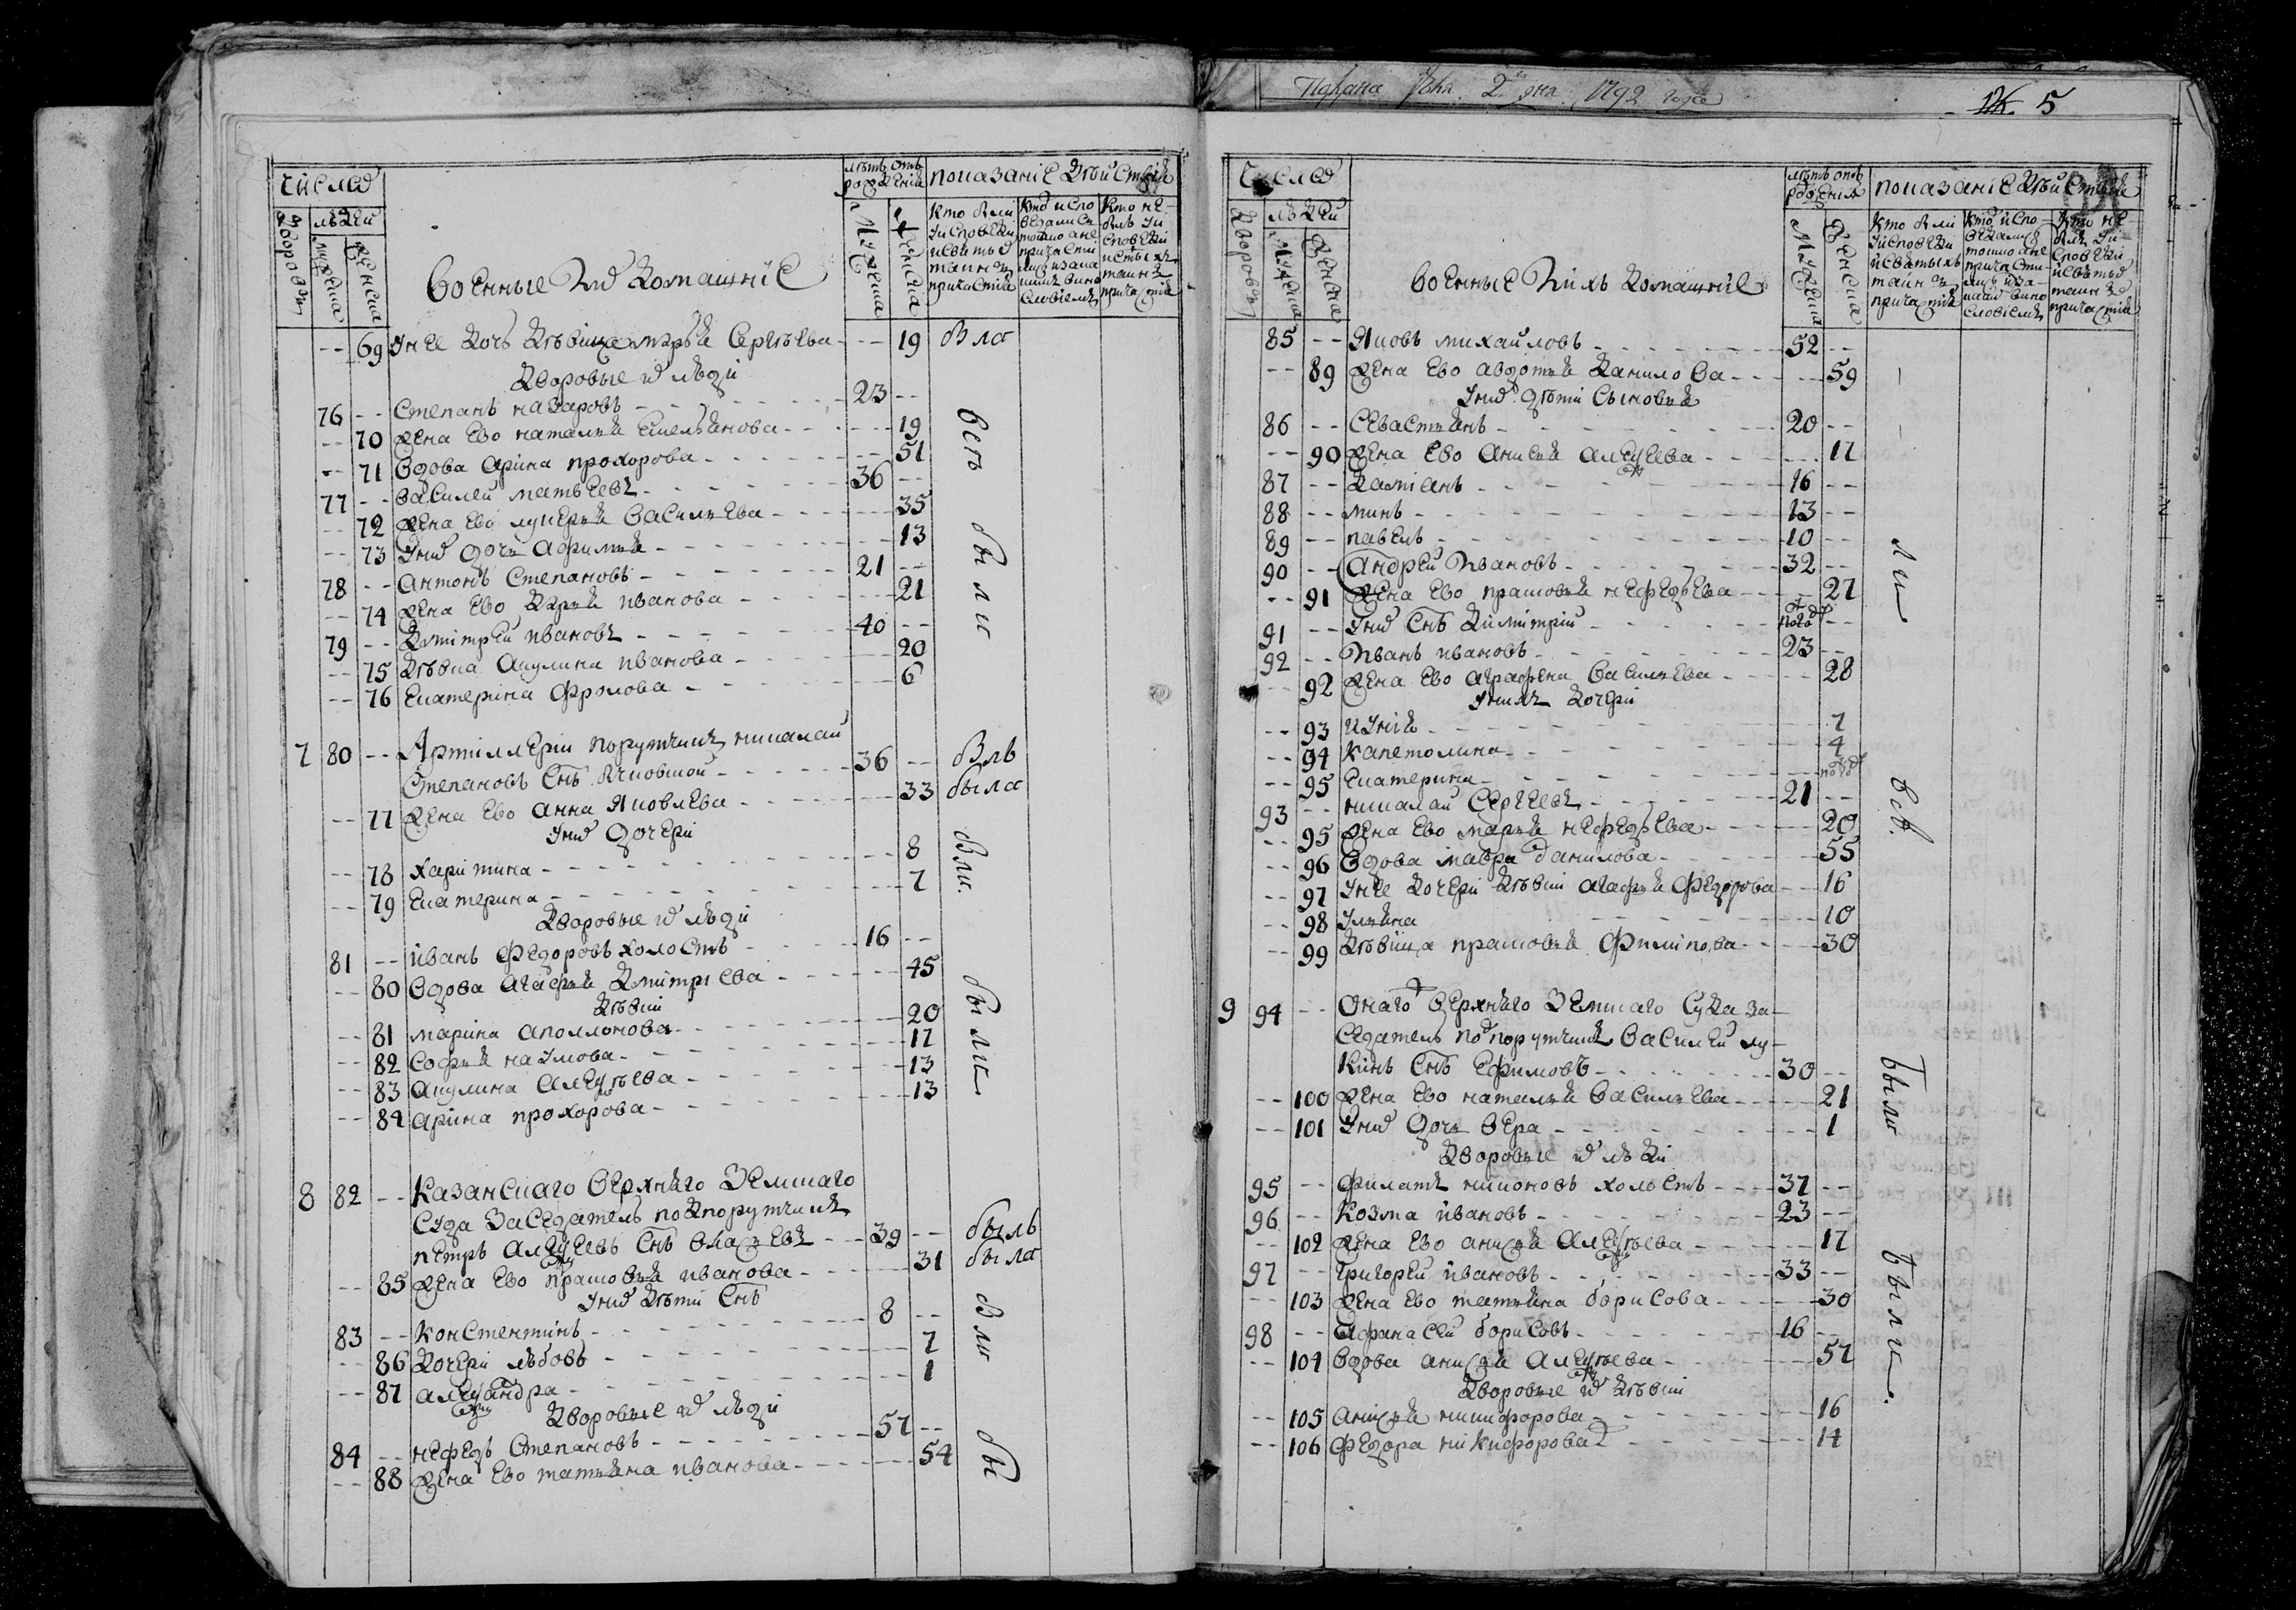 Числа
лѣтъ отъ рожденія
показаніе дѣйствій
дворовъ
людей
мужеска
женска
военные и ихъ домашніе
мужеска
женска
кто были у исповѣди и святыхъ таинъ причастія
-- 69 у нее дочь дѣвица марья Сергѣева -- 19 была
дворовые их люди
76 -- Степанъ назаровъ 23 --
-- 70 жена ево наталья Емельянова -- 19
-- 71 вдова арина прохорова -- 51
77 -- василей матвеевъ 36 --
-- 72 жена ево лукерья васильева -- 35
-- 73 у них дочь афимья -- 13
78 -- антонъ Степановъ 21 --
-- 74 жена ево дарья иванова -- 21
79 -- дмитрей ивановъ 40 --
-- 75 дѣвка акулина иванова -- 20
-- 76 екатерина фролова -- 6
всѣ были
7 80 -- Артиллеріи порутчикъ николай
Степановъ Снъ 36 -- былъ
-- 77 жена ево анна яковлева -- 33 была
у них дочери
-- 78 харитина -- 8
-- 79 екатерина -- 7
были
дворовые их люди
81 -- иванъ федоровъ холостъ 16 --
-- 80 вдова агафья дмитриева -- 45
дѣвки
-- 81 марина аполлонова -- 20
-- 82 софья наумова -- 17
-- 83 акулина алексѣева -- 13
-- 84 арина прохорова -- 13
были
8 82 -- Казанскаго верхняго Земскаго
Суда Заседатель подпорутчикъ
петръ алексеевъ Снъ 39 -- былъ
-- 85 жена ево прасковья иванова -- 31 была
у них дѣти Снъ
83 -- константинъ 8 --
-- 86 дочери любовь -- 7
-- 87 александра -- 1
были
дворовые их люди
84 -- нефедъ Степановъ 57 --
-- 88 жена ево татьяна иванова -- 54
бы
2 дня 1792 года
5
Числа
лѣтъ отъ рожденія
показаніе дѣйствій
дворовъ
людей
мужеска
женска
военные и ихъ домашніе
мужеска
женска
85 -- Яковъ михайловъ 52 --
-- 89 жена ево авдотья данилова -- 59
у них дѣти сыновья
86 -- Севастьянъ 20 --
-- 90 жена ево анисья алексеева -- 17
87 -- дамианъ 16 --
88 -- минъ 13 --
89 -- павелъ 10 --
90 -- Андрей Ивановъ 32 --
-- 91 жена ево прасковья нефедьева -- 27
91 -- у них Снъ димитрій полгод --
92 -- Иванъ ивановъ 23 --
-- 92 жена ево аграфена васильева -- 28
у них дочери
-- 93 -- 7
-- 94 капетолина -- 4
-- 95 екатерина -- полгод
93 -- николай Сергеевъ 21 --
-- 95 жена ево марья нефедьева -- 20
-- 96 вдова мавра данилова -- 55
-- 97 у нее дочери дѣвки агафья федорова -- 16
-- 98 ульяна -- 10
-- 99 дѣвица прасковья филипова -- 30
ли
всѣ
9 94 -- Онаго верхняго Земскаго Суда за-
седатель подпорутчикъ василей лу-
кинъ Снъ Ефимовъ 30 --
-- 100 жена ево наталья васильева -- 21
-- 101 у них дочь вера -- 1
были
дворовые их люди
95 -- филатъ никоновъ холостъ 37 --
96 -- козма ивановъ 23 --
-- 102 жена ево анисья алексѣева -- 17
97 -- григорей ивановъ 33 --
-- 103 жена ево татьяна борисова -- 30
98 -- афанасей борисовъ 16 --
-- 104 вдова анисья алексѣева -- 57
дворовые их дѣвки
-- 105 анисья никифорова -- 16
-- 106 федора никифорова -- 14
были.